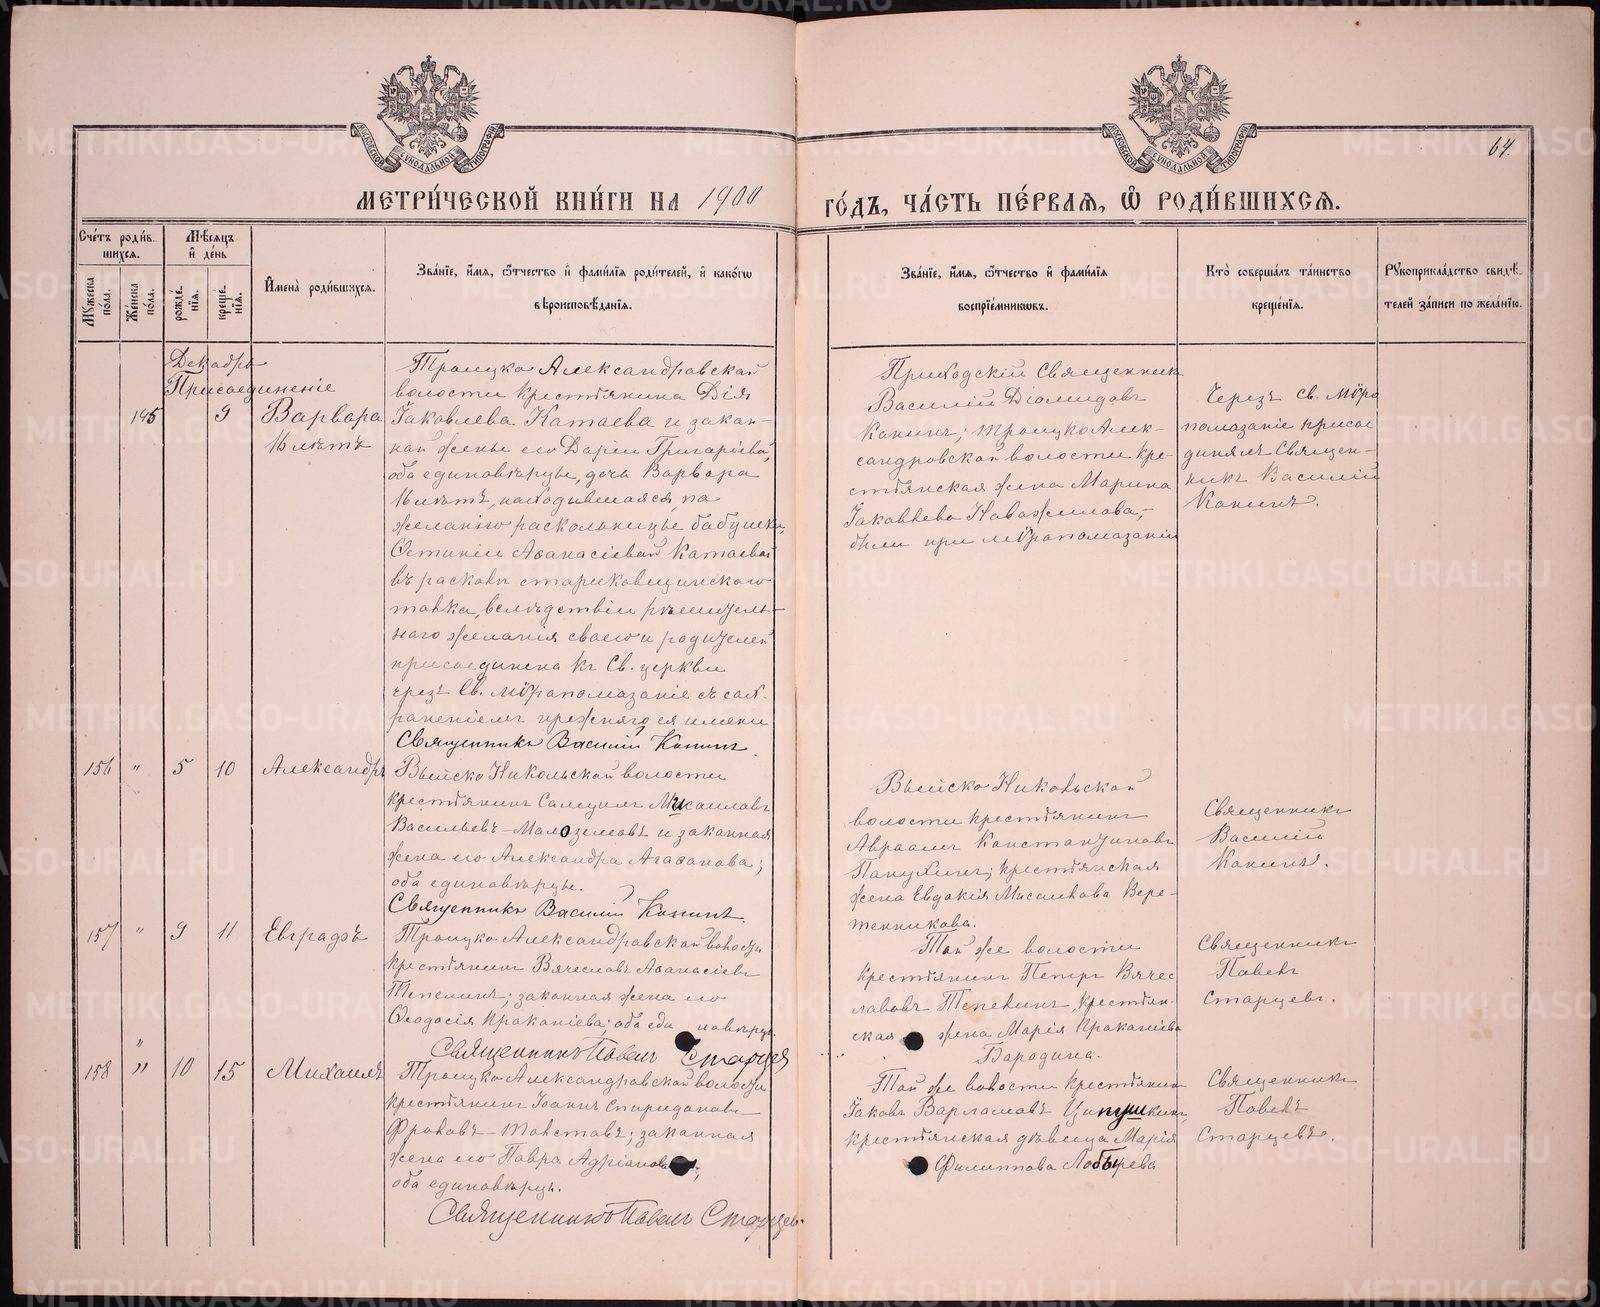 64.
МЕТРИ́ЧЕСКОЙ КНИ́ГИ НА 1900 ГО́ДЪ, ЧА́СТЬ ПЕ́РВАЯ, Ѡ҆ РОДИ́ВШИХСЯ.
Сче́тъ роди́вшихся.
Мѣ́сяцъ и҆ де́нь
Мꙋ́жеска по́ла.
Же́нска по́ла.
рожде́нїя.
креще́нїя.
И҆мена̀ роди́вшихся.
Зва́нїе, и҆́мя, ѻ҆́тчество и҆ фами́лїя роди́телей, и҆ како́гѡ
вѣроисповѣ́данїя.
Зва́нїе, и҆́мя, ѻ҆́тчество и҆ фами́лїя
воспрїе́мникѡвъ.
Кто̀ соверша́лъ та́инство
креще́нїя.
Рꙋкоприкла́дство свидѣ́-
телей за́писи по жела́нїю.
Декабрь
Присоединеніе
145 9 Варвара
16 лѣтъ
Троицко Александровской
волости крестьянина Дія
Іаковлева Катаева и закон-
ной жены его Дарьи Григоріевой,
оба единовѣрцы, дочь Варвара
16 лѣтъ, находившаяся, по
желанію раскольницы бабушки,
Ѳетиніи Аѳанасіевой Катаевой
въ расколѣ стариковщинскаго
толка, вслѣдствіи рѣшитель-
наго желанія своего и родителей
присоединена къ Св. церкви
чрезъ Св. Мѵропомазаніе съ сох-
раненіемъ прежняго ея имени
Священникъ Василій Конинъ.
Приходскій Священникъ
Василій Діомидовъ
Конинъ; Троицко Алек-
сандровской волости кре-
стьянская жена Марина
Іаковлева Новожилова,-
были при мѵропомазаніи
Чрезъ Св. Мѵро
помазаніе присое
динялъ Священ-
никъ Василій
Конинъ.
156 " 5 10 Александръ
Выйско Никольской волости
крестьянинъ Самуилъ Михаиловъ
Васильевъ-Малоземовъ и законная
жена его Александра Агаѳонова;
оба единовѣрцы.
Священникъ Василій Конинъ.
Выйско Никольской
волости крестьянинъ
Авраамъ Константиновъ
Папухинъ; крестьянская
жена Евдокія Михаилова Вере-
тенникова.
Священникъ
Василій
Конинъ.
157 " 9 11 Евграфъ
Троицко Александровской волости
крестьянинъ Вячеславъ Аѳанасіевъ
Тепелинъ; законная жена его
Ѳеодосія Прокопіева; оба еди новѣрцы.
Священникъ Павелъ Старцев
Той же волости
крестьянинъ Петръ Вячес
лавовъ Тепелинъ, крестьян-
ская жена Марія Прокопіева
Бородина.
Священникъ
Павелъ
Старцевъ.
"
158 " 10 15 Михаилъ
Троицко Александровской волости
крестьянинъ Іоаннъ Спиридоновъ
Фроловъ-Толстовъ; законная
жена его Павла Адріанова;
оба единовѣрцы.
Священникъ Павелъ Старцев.
Той же волости крестьянинъ
Іаковъ Варлаамовъ Ципушкинъ,
крестьянская дѣвица Марія
Филиппова Лобырева
Священникъ
Павелъ
Старцевъ.
METRIKI.GASO-URAL.RU